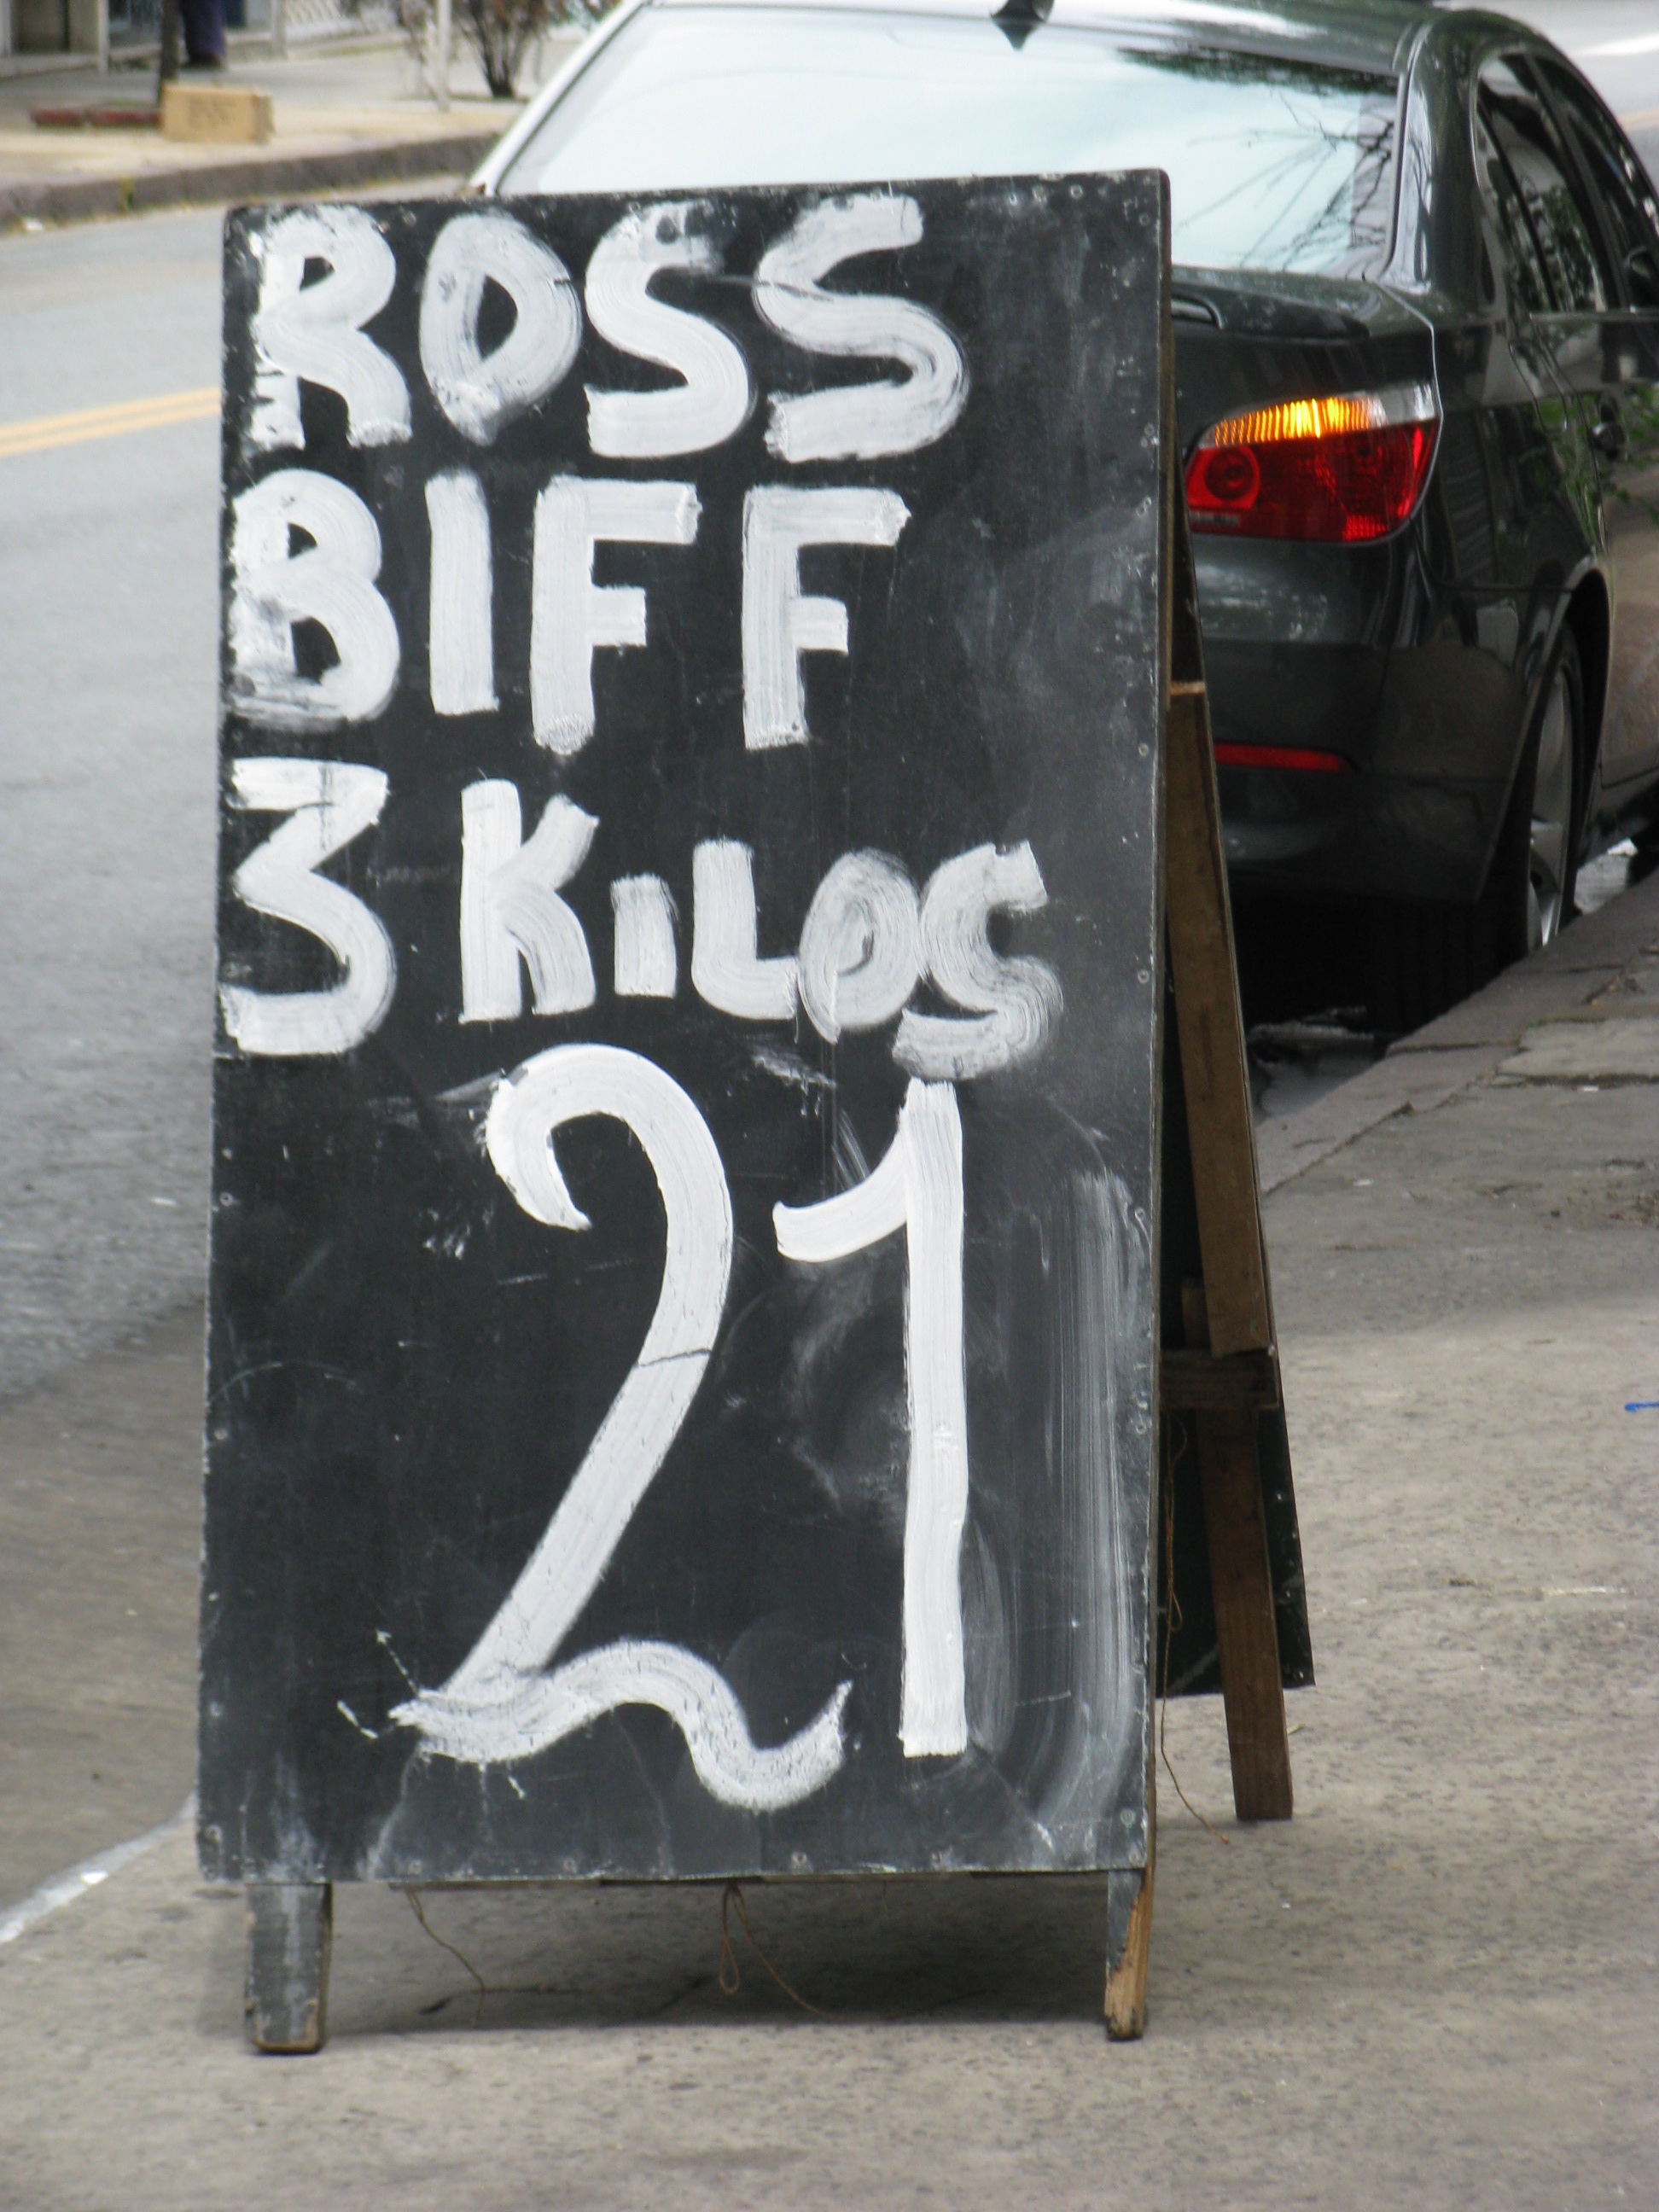 ROSS
BIFF
3 KiLOS
21